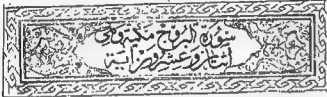 سورة البروج مكية وهى
اثنان وعشرون اية